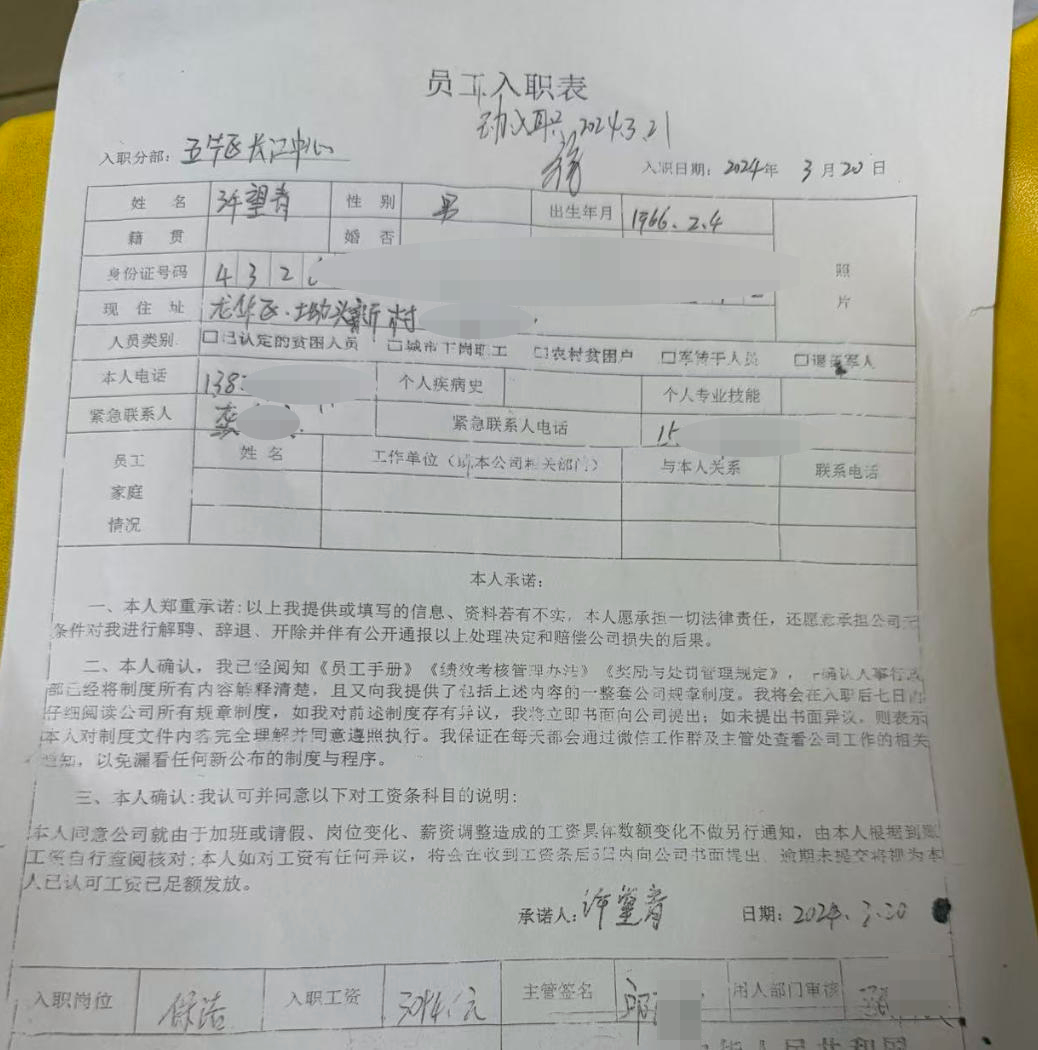 员工入职表
入职 2024.3.21
入职分部: 五华区长江中心
入职日期: 2024年 3月20日
姓名 许望青 性别 男 出生年月 1966.2.4
籍贯 婚否
照片
身份证号码 4 3 2
现住址 龙华区·坳头新村
人员类别 □已认定的贫困人员 □城市下岗职工 □农村贫困户 □军转干人员 □退伍军人
本人电话 138 个人疾病史 个人专业技能
紧急联系人 紧急联系人电话 15
员工家庭情况 姓名 工作单位（或本公司相关部门） 与本人关系 联系电话
本人承诺:
一、本人郑重承诺:以上我提供或填写的信息、资料若有不实，本人愿承担一切法律责任，还愿意承担公司无
条件对我进行解聘、辞退、开除并伴有公开通报以上处理决定和赔偿公司损失的后果。
二、本人确认，我已经阅知《员工手册》《绩效考核管理办法》《奖励与处罚管理规定》，确认人事行政
部已经将制度所有内容解释清楚，且又向我提供了包括上述内容的一整套公司规章制度。我将会在入职后七日内
仔细阅读公司所有规章制度，如我对前述制度存有异议，我将立即书面向公司提出；如未提出书面异议，则表示
本人对制度文件内容完全理解并同意遵照执行。我保证在每天都会通过微信工作群及主管处查看公司工作的相关
通知，以免漏看任何新公布的制度与程序。
三、本人确认:我认可并同意以下对工资条科目的说明:
本人同意公司就由于加班或请假、岗位变化、薪资调整造成的工资具体数额变化不做另行通知，由本人根据到账
工资自行查阅核对;本人如对工资有任何异议，将会在收到工资条后5日内向公司书面提出，逾期未提交将视为本
人已认可工资已足额发放。
承诺人: 许望青 日期: 2024.3.20
入职岗位 保洁 入职工资 元 主管签名 邱 用人部门审核
人民共和国